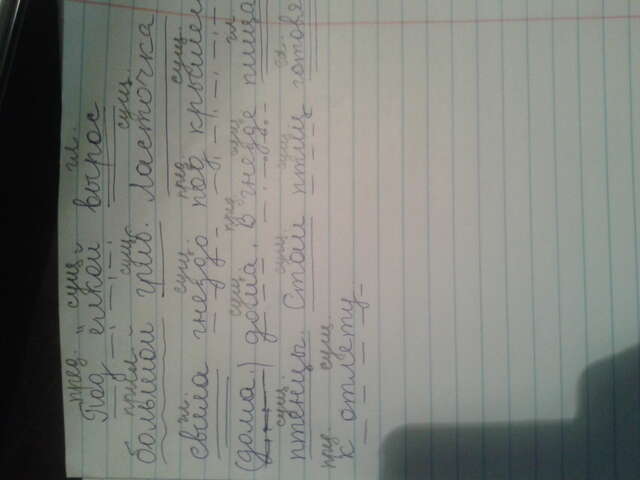 пред. сущ. гл.
Под ёлкой вырос
прил. сущ. сущ.
большой гриб. Ласточка
гл. сущ. пред. сущ.
свила гнездо под крышей
сущ. пред. сущ. гл.
(дома) дома. В гнезде пища
сущ. сущ. сущ. гл.
птенцы. Стаи птиц готове
пред. сущ.
к отлёту